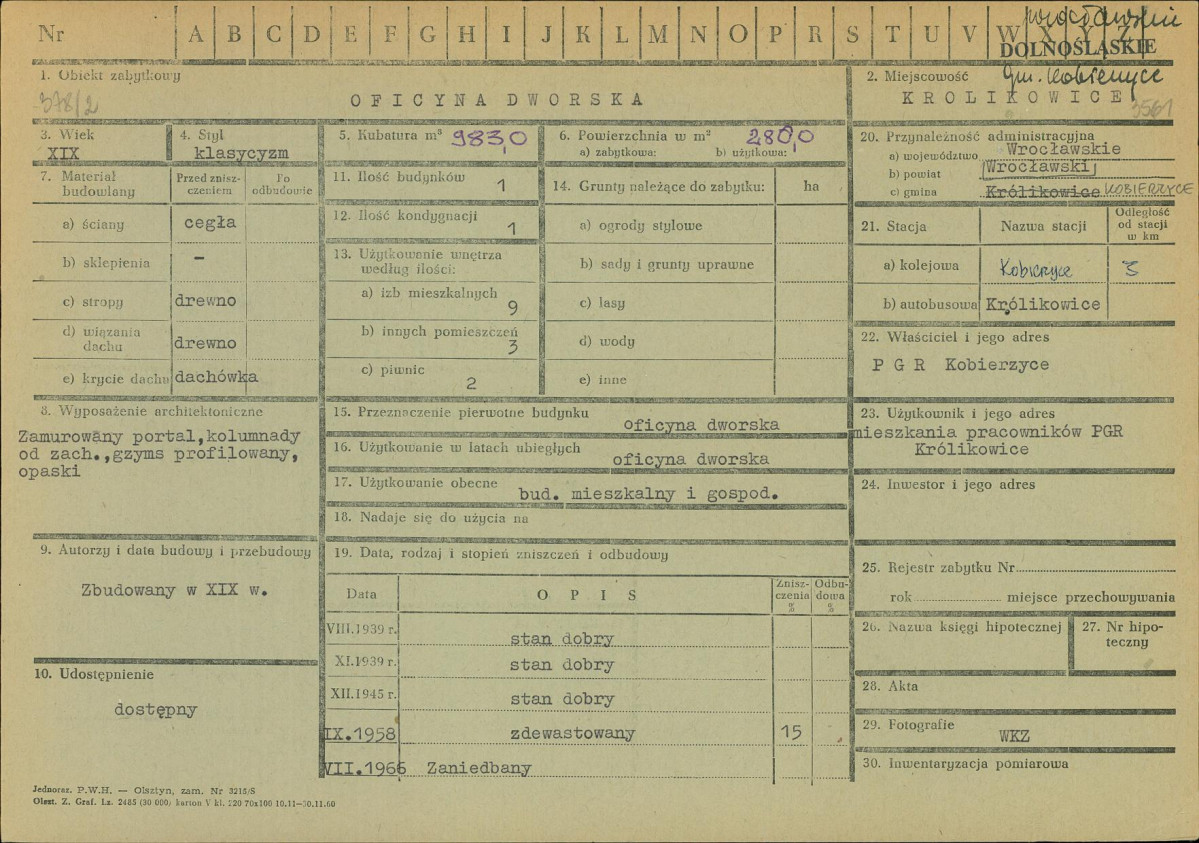 Nr A B C D E F G H I J K L M N O P R S T U V W X Y Z
wrocławskie
DOLNOŚLĄSKIE
1. Obiekt zabytkowy
378/2
OFICYNA DWORSKA
2. Miejscowość gm. Kobierzyce
KROLIKOWICE
3561
3. Wiek
XIX
4. Styl
klasycyzm
5. Kubatura m³ 983,0
6. Powierzchnia w m² 280,0
a) zabytkowa: b) użytkowa:
7. Materiał budowlany
Przed zniszczeniem
Po odbudowie
a) ściany cegła
b) sklepienia –
c) stropy drewno
d) wiązania dachu drewno
e) krycie dachu dachówka
8. Wyposażenie architektoniczne
Zamurowany portal,kolumnady
od zach.,gzyms profilowany,
opaski
9. Autorzy i data budowy i przebudowy
Zbudowany w XIX w.
10. Udostępnienie
dostępny
11. Ilość budynków 1
12. Ilość kondygnacji 1
13. Użytkowanie wnętrza
według ilości:
a) izb mieszkalnych 9
b) innych pomieszczeń 3
c) piwnic 2
14. Grunty należące do zabytku: ha
a) ogrody stylowe
b) sady i grunty uprawne
c) lasy
d) wody
e) inne
15. Przeznaczenie pierwotne budynku
oficyna dworska
16. Użytkowanie w latach ubiegłych
oficyna dworska
17. Użytkowanie obecne
bud. mieszkalny i gospod.
18. Nadaje się do użycia na
19. Data, rodzaj i stopień zniszczeń i odbudowy
Data OPIS Zniszczenia % Odbudowa %
VIII.1939 r. stan dobry
XI.1939 r. stan dobry
XII.1945 r. stan dobry
IX.1958 zdewastowany 15
VII.1966 Zaniedbany
20. Przynależność administracyjna
a) województwo Wrocławskie
b) powiat Wrocławski
c) gmina Królikowice KOBIERZYCE
21. Stacja Nazwa stacji Odległość od stacji w km
a) kolejowa Kobierzyce 3
b) autobusowa Królikowice
22. Właściciel i jego adres
P G R Kobierzyce
23. Użytkownik i jego adres
mieszkania pracowników PGR
Królikowice
24. Inwestor i jego adres
25. Rejestr zabytku Nr
rok miejsce przechowywania
26. Nazwa księgi hipotecznej
27. Nr hipoteczny
28. Akta
29. Fotografie
WKZ
30. Inwentaryzacja pomiarowa
Jednoraz. P.W.H. — Olsztyn, zam. Nr 3215/S
Olszt. Z. Graf. Lz. 2485 (30 000) karton V kl. 220 70x100 10.11—30.11.60